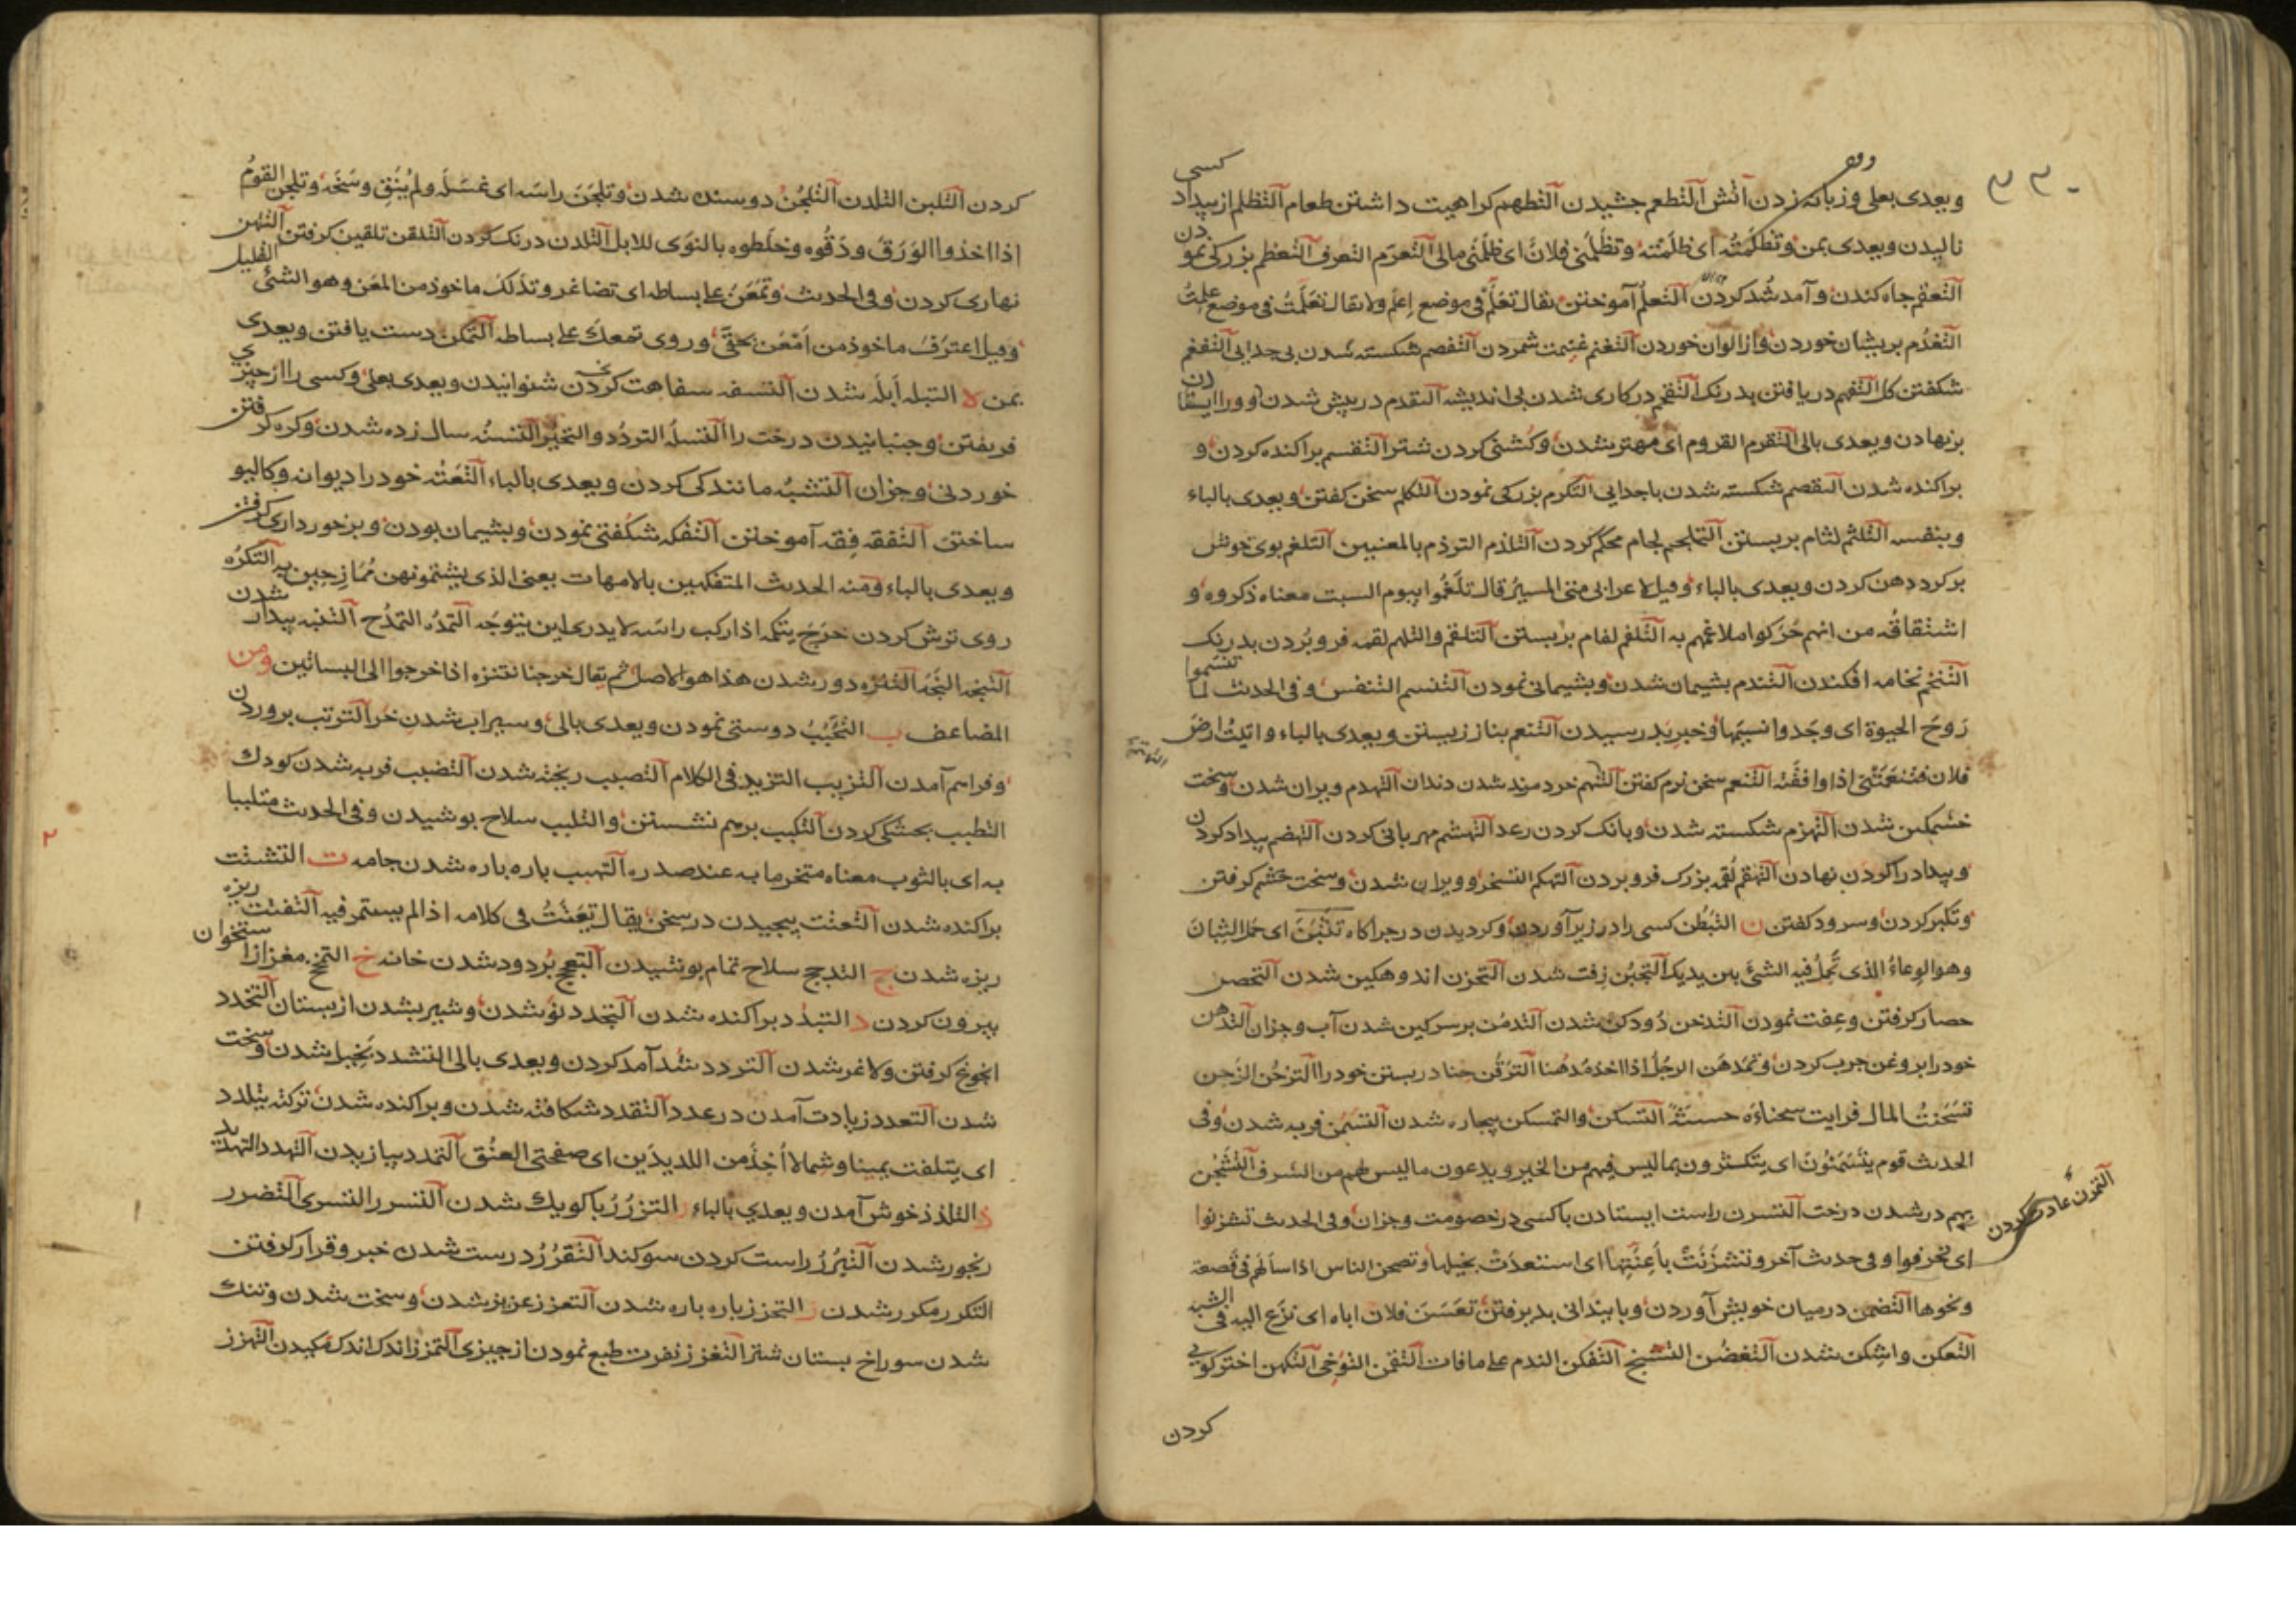 ويعدى بعلى وزبانه زدن آتش التطعم جشيدن التطهم كراهيت داشتن طعام التظلم از بيداد كسى
ناليدن ويعدى بمن وتظلمته اى ظلمته وتظلمنى فلان اى ظلمنى مالى التعرم التعرف التعظم بزركى نمودن
التعقم جاه كندن وآمد شد كردن التعلم آموختن يقال تعلم فى موضع اعلم ولا يقال تعلمت فى موضع علمت
التغذم بريشان خوردن واز الوان خوردن التغنم غنيمت شمردن التفصم شكسته شدن بى جدايى التفغم
شكفتن كل التفهم دريافتن بدرنك التقحم در كارى شدن بى انديشه التقدم در پيش شدن
بر نهادن ويعدى بالى التقرم القروم اى مهتر شدن وكشنى كردن شتر التقسم براكنده كردن و
براكنده شدن التقصم شكسته شدن با جدايى التكرم بزركى نمودن التكلم سخن كفتن ويعدى بالباء
وبنفسه التلثم لثام بر بستن التلجم لجام محكم كردن التلذم التردم بالمعنيين التلغم بوى خوش
بر كرد دهن كردن ويعدى بالباء وقيل لاعرابى متى المسير قال تلغموا بيوم السبت معناه ذكروه و
اشتقاقه من انهم حركوا ملاغمهم به التلفم لفام بر بستن التلقم والتلهم لقمه فرو بردن بدرنك
التنخم نخامه افكندن التندم بشيمان شدن وبشيمانى نمودن التنسم التنفس وفى الحديث لما تنسموا
روح الحيوة اى وجدوا نسيمها وخبر بدر رسيدن التنعم بناز زيستن ويعدى بالباء واتيت ارض
فلان فتنعمتنى اذا وافقته التنغم سخن نرم كفتن التهتم خرد مرد شدن دندان التهدم ويران شدن وسخت
خشمكين شدن التهزم شكسته شدن وبانك كردن رعد التهشم مهربانى كردن التهضم بيداد كردن
وبيداد را كردن نهادن التهقم لقمه بزرك فرو بردن التهكم التسخر وويران شدن وسخت خشم كرفتن
وتكبر كردن وسرود كفتن ن التبطن كسى را در زير آوردن وكرديدن در جراكاه تثبن اى حمل الثبان
وهو الوعاء الذى تحمل فيه الشئ بين يديك التجبن زفت شدن التحزن اندوهكين شدن التحصن
حصار كرفتن وعفت نمودن التدخن دودكن شدن التدمن بر سركين شدن آب وجزان التدهن
خود را بروغن جرب كردن وتمدهن الرجل اذا اخذ مدهنا الترقن حنا در بستن خود را التزحن الزحن
تسحنت المال فرايت سحناءه حسنة التسكن والتمسكن بيجاره شدن التسمن فربه شدن وفى
الحديث قوم يتسمنون اى يتكثرون بما ليس فيهم من الخير ويدعون ما ليس لهم من الشرف التشجن
بهم در شدن درخت التشزن راست ايستادن با كسى در خصومت وجزان وفى الحديث تشزنوا
اى تحرفوا وفى حديث آخر وتشزنت باعنتها اى استعدت بخيلها وتصحن الناس اذا سألهم فى قصعة
ونحوها التضمن در ميان خويش آوردن وبا بيندانى بد برفتن تعسن فلان اباه اى نزع اليه فى الشبه
التعكن واشكن شدن التغضن التشنج التفكن الندم على ما فات التقمن التوخى التكهن اختر كويى
كردن
التمرن عادت كردن
كردن التلبن التلدن التلجن دوسنده شدن وتلجن راسه اى غسله ولم ينق وسخه وتلجن القوم
اذا اخذوا الورق ودقوه وخلطوه بالنوى للابل التلدن درنك كردن التلقن تلقين كرفتن التهن
نهارى كردن وفى الحديث وتمعن على بساطه اى تصاغر وتذلل ماخوذ من المعن وهو الشئ القليل
وقيل اعترف ماخوذ من امعن بحقى وروى تمعك على بساطه التمكن دست يافتن ويعدى
بمن لا التبله ابله شدن التسفه سفاهت كردن شنوانيدن ويعدى بعلى وكسى را از چيزى
فريفتن وجنبانيدن درخت را التسله التردد والتحير التسنه سال زده شدن وكره كرفتن
خوردنى وجزان التشبه مانندكى كردن ويعدى بالباء التعته خود را ديوانه وكاليو
ساختن التفقه فقه آموختن التفكه شكفتى نمودن وبشيمان بودن وبرخوردارى كرفتن
ويعدى بالباء ومنه الحديث المتفكهين بالامهات يعنى الذى يشتمونهن ممازحين به التكره
روى ترش كردن خرج يتكمه اذا ركب راسه لا يدرى اين يتوجه التمده التمدح التنبه بيدار شدن
التنجه التجه التنزه دور شدن هذا هو الاصل ثم يقال خرجنا نتنزه اذا خرجوا الى البساتين ومن
المضاعف ب التحبب دوستى نمودن ويعدى بالى وسيراب شدن خر التربب بروردن
وفراهم آمدن التزبب التزيد فى الكلام التصبب ريخته شدن التضبب فربه شدن كودك
التطبب بجشكى كردن التكبب برهم نشستن والتلبب سلاح بوشيدن وفى الحديث متلببا
به اى بالثوب معناه متحزما به عند صدره التهبب باره باره شدن جامه ت التشتت
براكنده شدن التعنت بيجيدن در سخن يقال تعنت فى كلامه اذا لم يستمر فيه التفتت ريزه
ريزه شدن ج التدجج سلاح تمام بوشيدن التعجج بر دود شدن خانه خ التمخخ مغز از استخوان
بيرون كردن د التبدد براكنده شدن التجدد نو شدن وشير بشدن از بستان التخدد
انجوغ كرفتن ولاغر شدن التردد شد آمد كردن ويعدى بالى التشدد بخيل شدن وسخت
شدن التعدد زيادت آمدن در عدد التقدد شكافته شدن وبراكنده شدن تركته يتلدد
اى يتلفت يمينا وشمالا اخذ من اللديدين اى صفحتى العنق التمدد بيازيدن التهدد التهديد
ذ التلذذ خوش آمدن ويعدى بالباء ر التزرر با كوبك شدن التسرر التسرى التضرر
رنجور شدن التبرر راست كردن سوكند التقرر درست شدن خبر وقرار كرفتن
التكرر مكرر شدن ز التحزز باره باره شدن التعزز عزيز شدن وسخت شدن وتنك
شدن سوراخ بستان شتر التغزز نفرت طبع نمودن از جيزى التمزز اندك اندك مكيدن التهزز